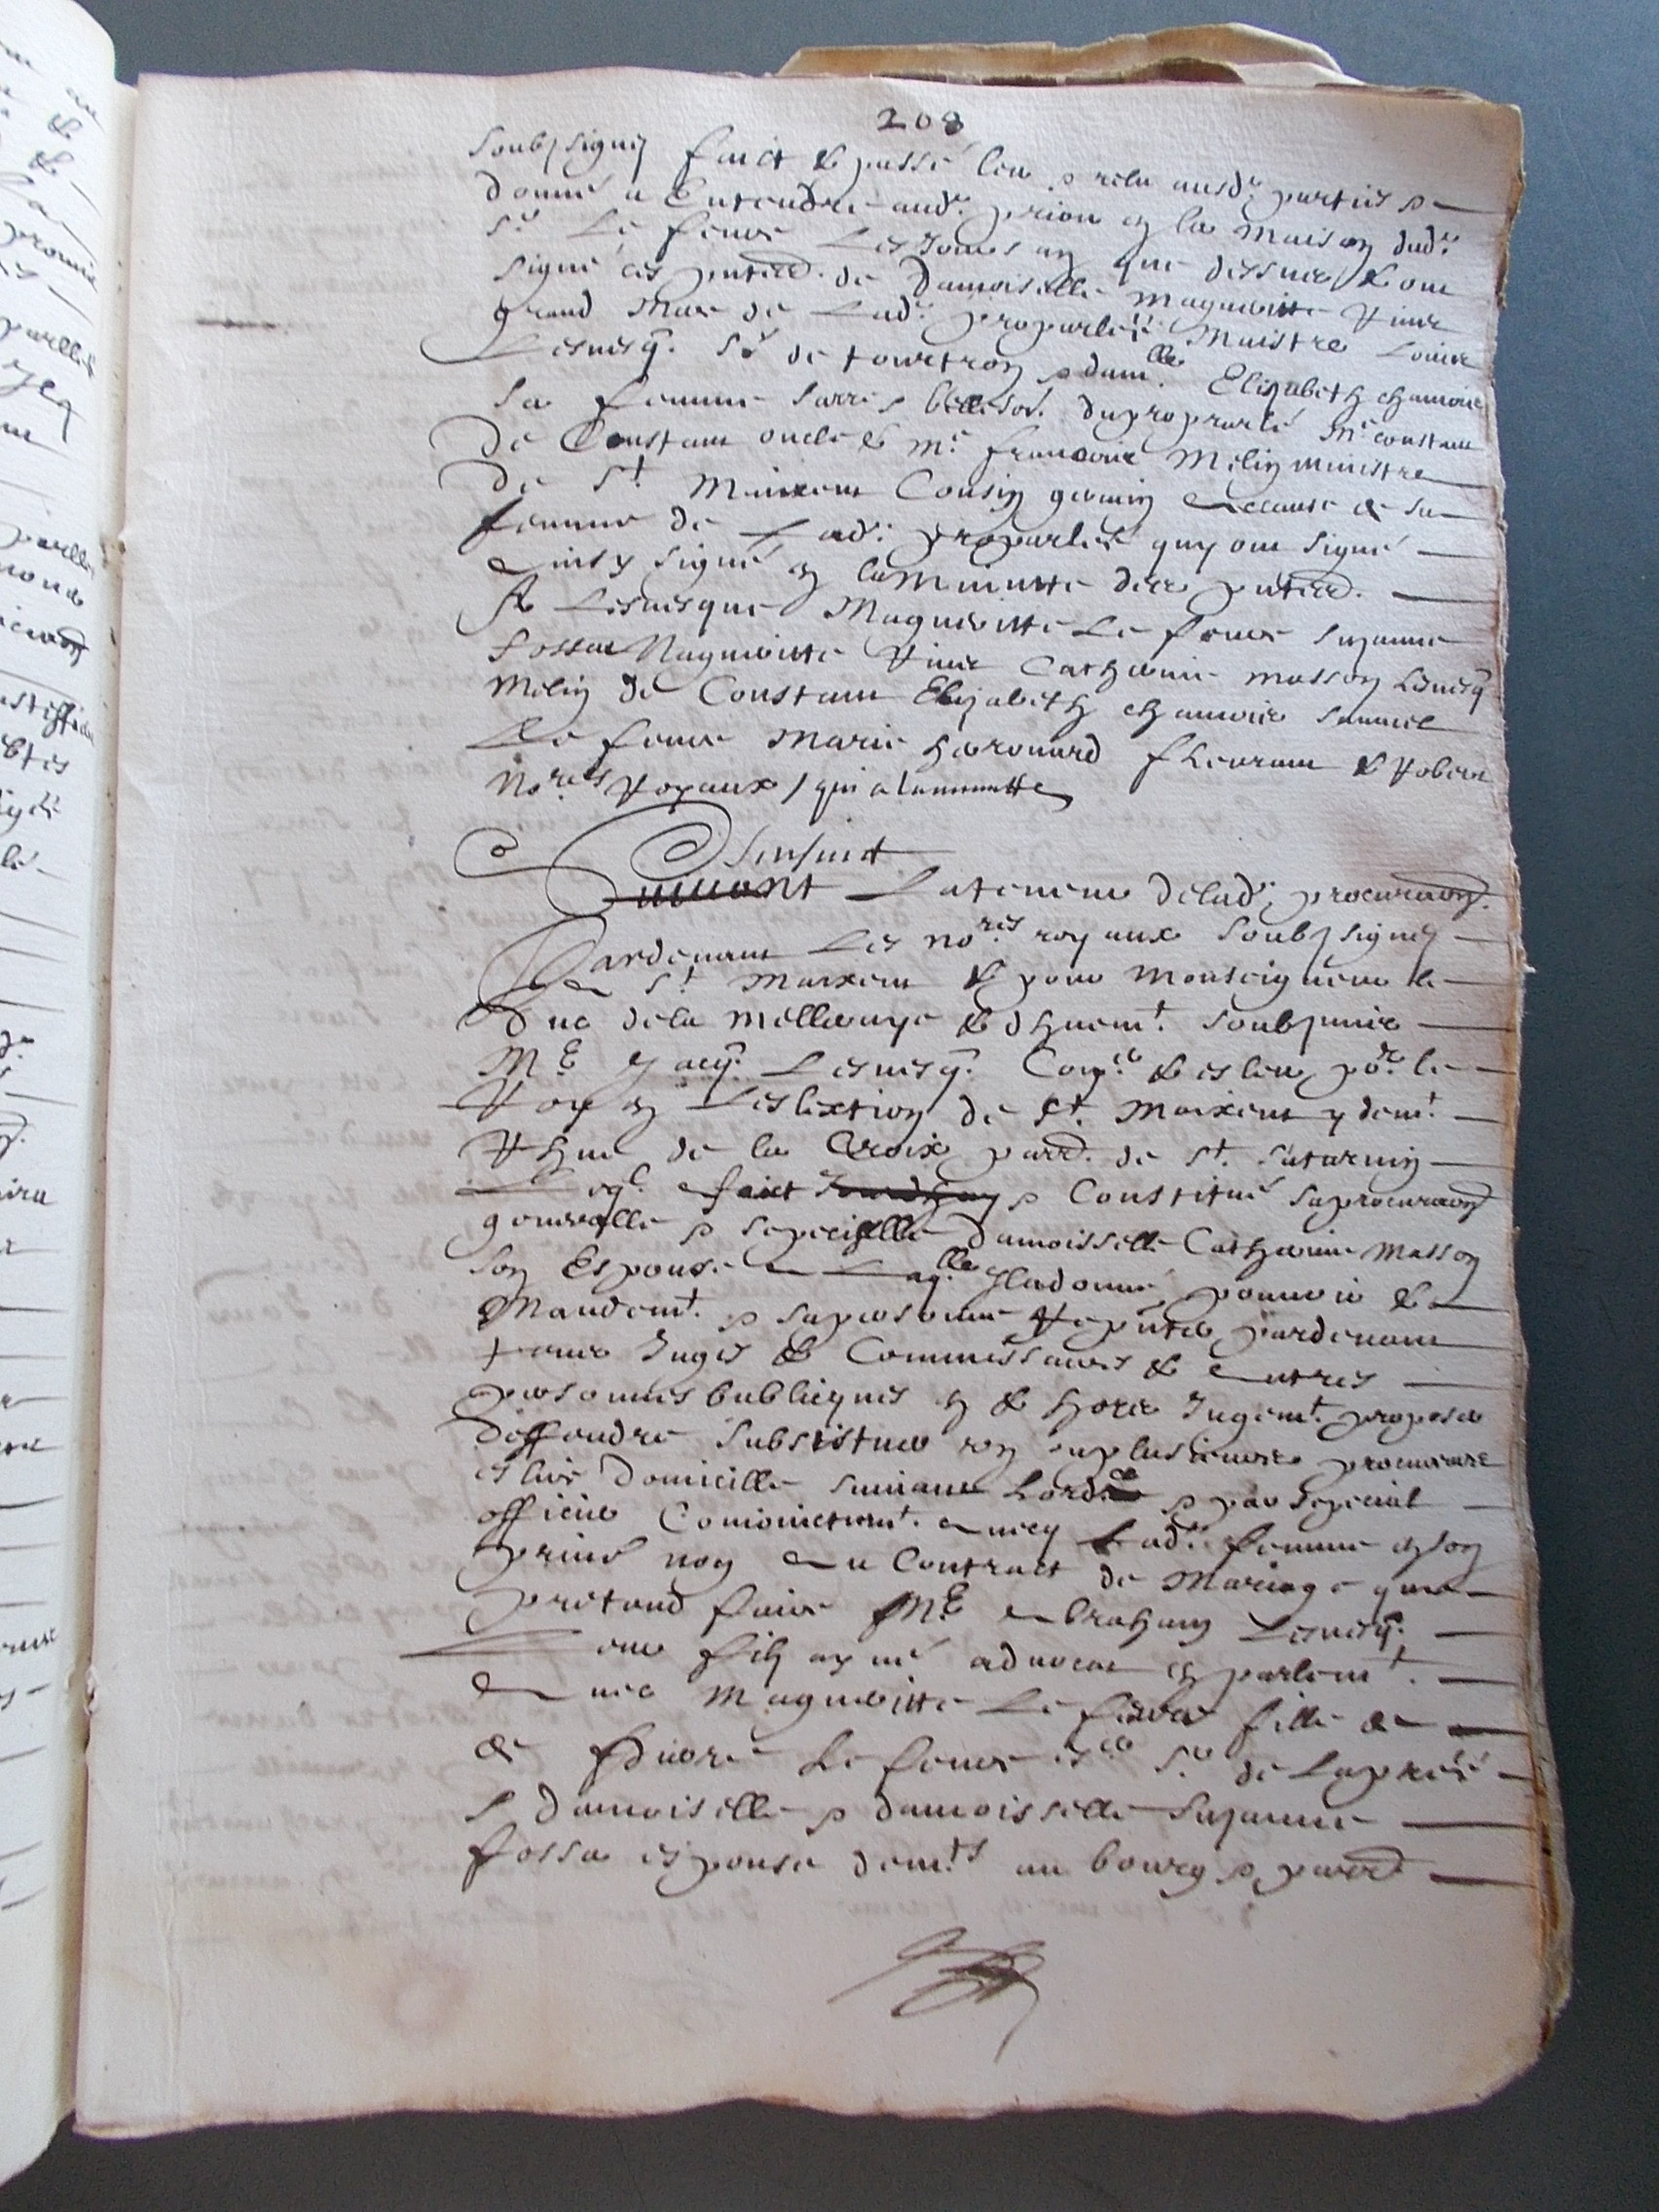 208
soubzsignez faict & passé leu & relu ausd. parties &
donné a entendre aud. prion en la maison dud.
Sr Le febvre Les Jours an que dessus & ont
signé ces pntes de damoiselle Marguerite
grand Mere de Lad. proparlée Maistre Louis
Lesvesq. Sr de tourtron & damlle Elizabeth chamois
Sa femme duproparlé Me constant
De Constant oncle & Me francois Melin ministre
De St Maixent Cousin germin a cause de sa
femme de Lad. proparlée quy ont signé
ainsy signé en la Minutte des pntes
A Lesvesque Margueritte Le febvre Suzanne
fossa Margueritte Catherine masson Lesvesq.
Melin de Constant Elizabeth chamois Samuel
Le febvre Marie herouard fleurant & Robert
Nores Royaux / qui a la minutte
Sensuict
Suivant La teneur de lad. procuraon
Pardevant Les nores royaux soubzsignez
a St Maixent & pour Monseigneur le
Duc de la Melleraye & dhuemt. soubzmis
Me Jacq. Lesvesq. Conser & esleu por le
Roy en Leslextion de St Maixent y demt.
Rhue de la Croix parr. de St. Saturnin
Leql. a faict & Constitué sa procuraon
generalle & speciyalle damoisselle Catherine Masson
Son Espouse a Laqlle Il a donné pouvoir &
Mandemt. & sa personne Repnter pardevant
tous Juges & Commissaires & autres
personnes bublicques en & hors Jugemt. proposer
deffendre substituer un ou plusieurs procureurs
eslire domicille suivant Lordce & par special
officier Conjoinctemt. avecq Lad. femme en son
privé nom au Contract de Mariage que
pretend faire Me abraham Lesvesq.
Leur filz ayné advocat en parlemt.
avec Margueritte Le febvre fille de
de Le febvre escr Sr de
& damoiselle & damoisselle Suzanne
fossa espouse demts au bourg & parr